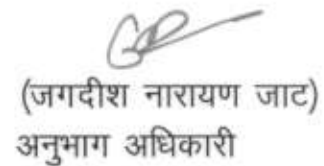 (जगदीश नारायण जाट)
अनुभाग अधिकारी